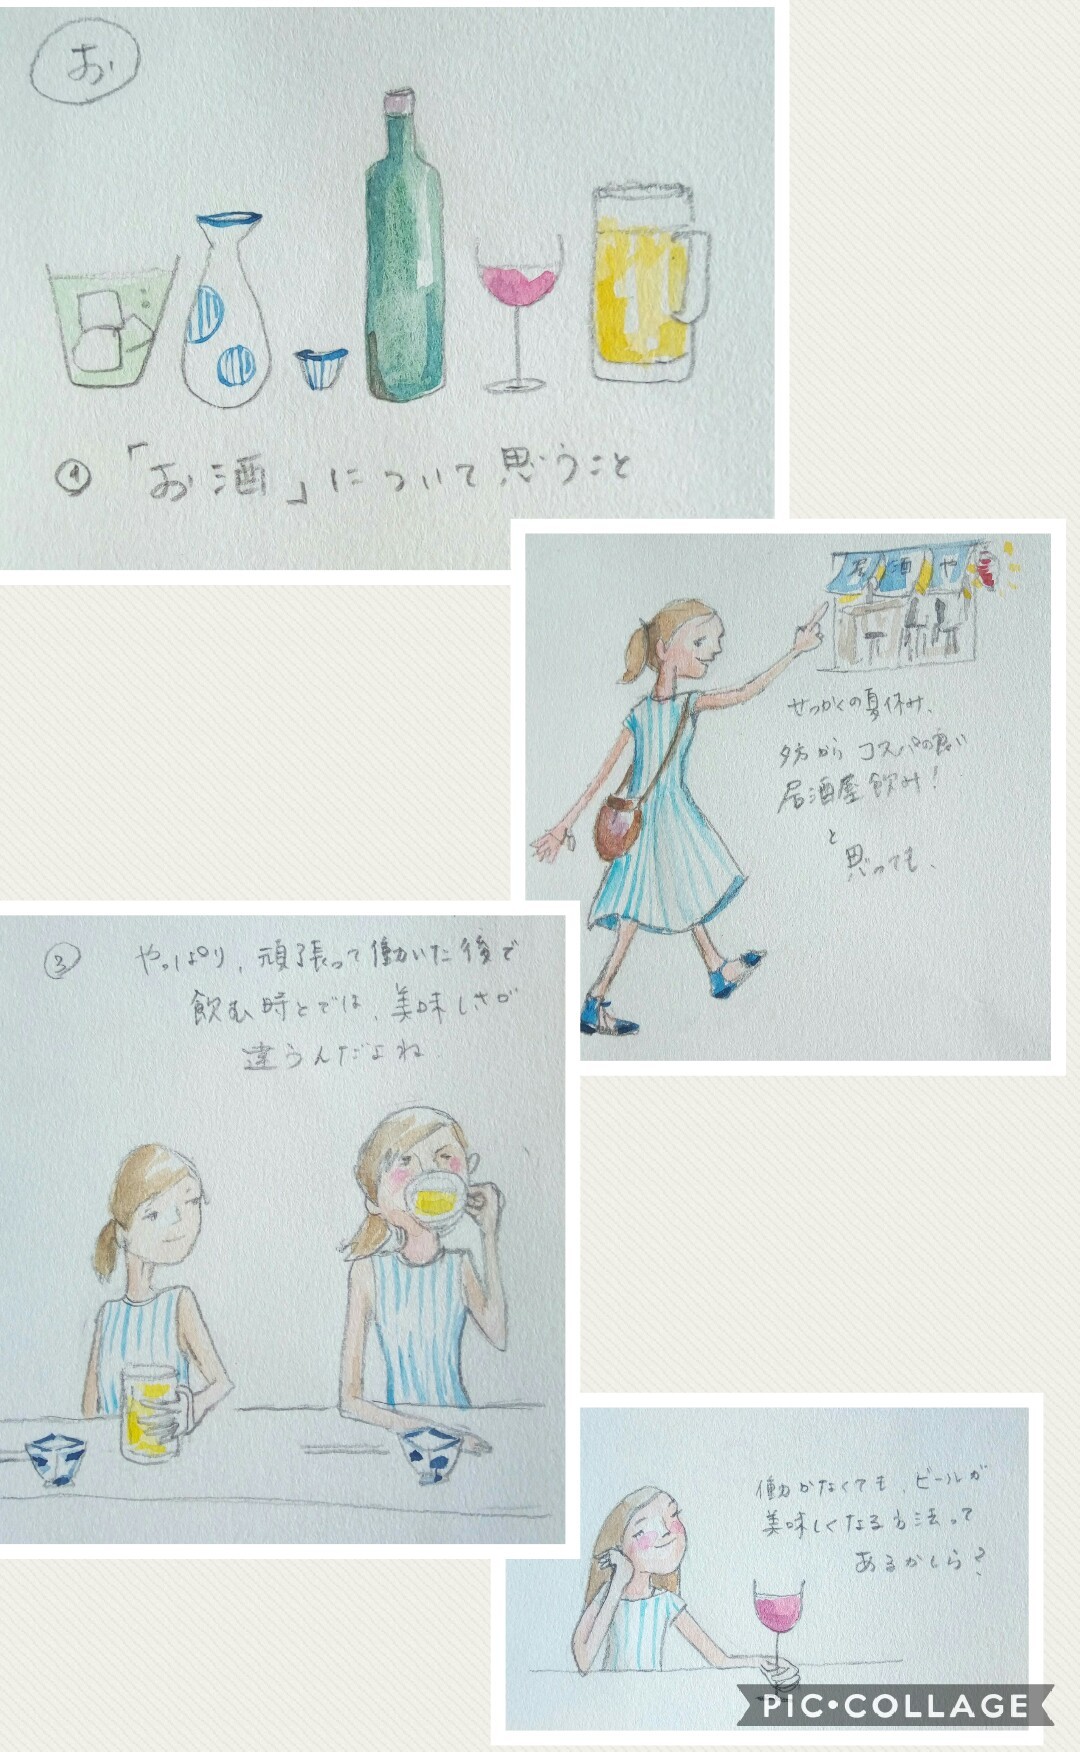 お
① 「お酒」について思うこと
居酒や
せっかくの夏休み、
夕方からコスパの良い
居酒屋飲み!
と
思っても、
③ やっぱり、頑張って働いた後で
飲む時とでは、美味しさが
違うんだよね
働かなくても、ビールが
美味しくなる方法って
あるかしら?
PIC•COLLAGE